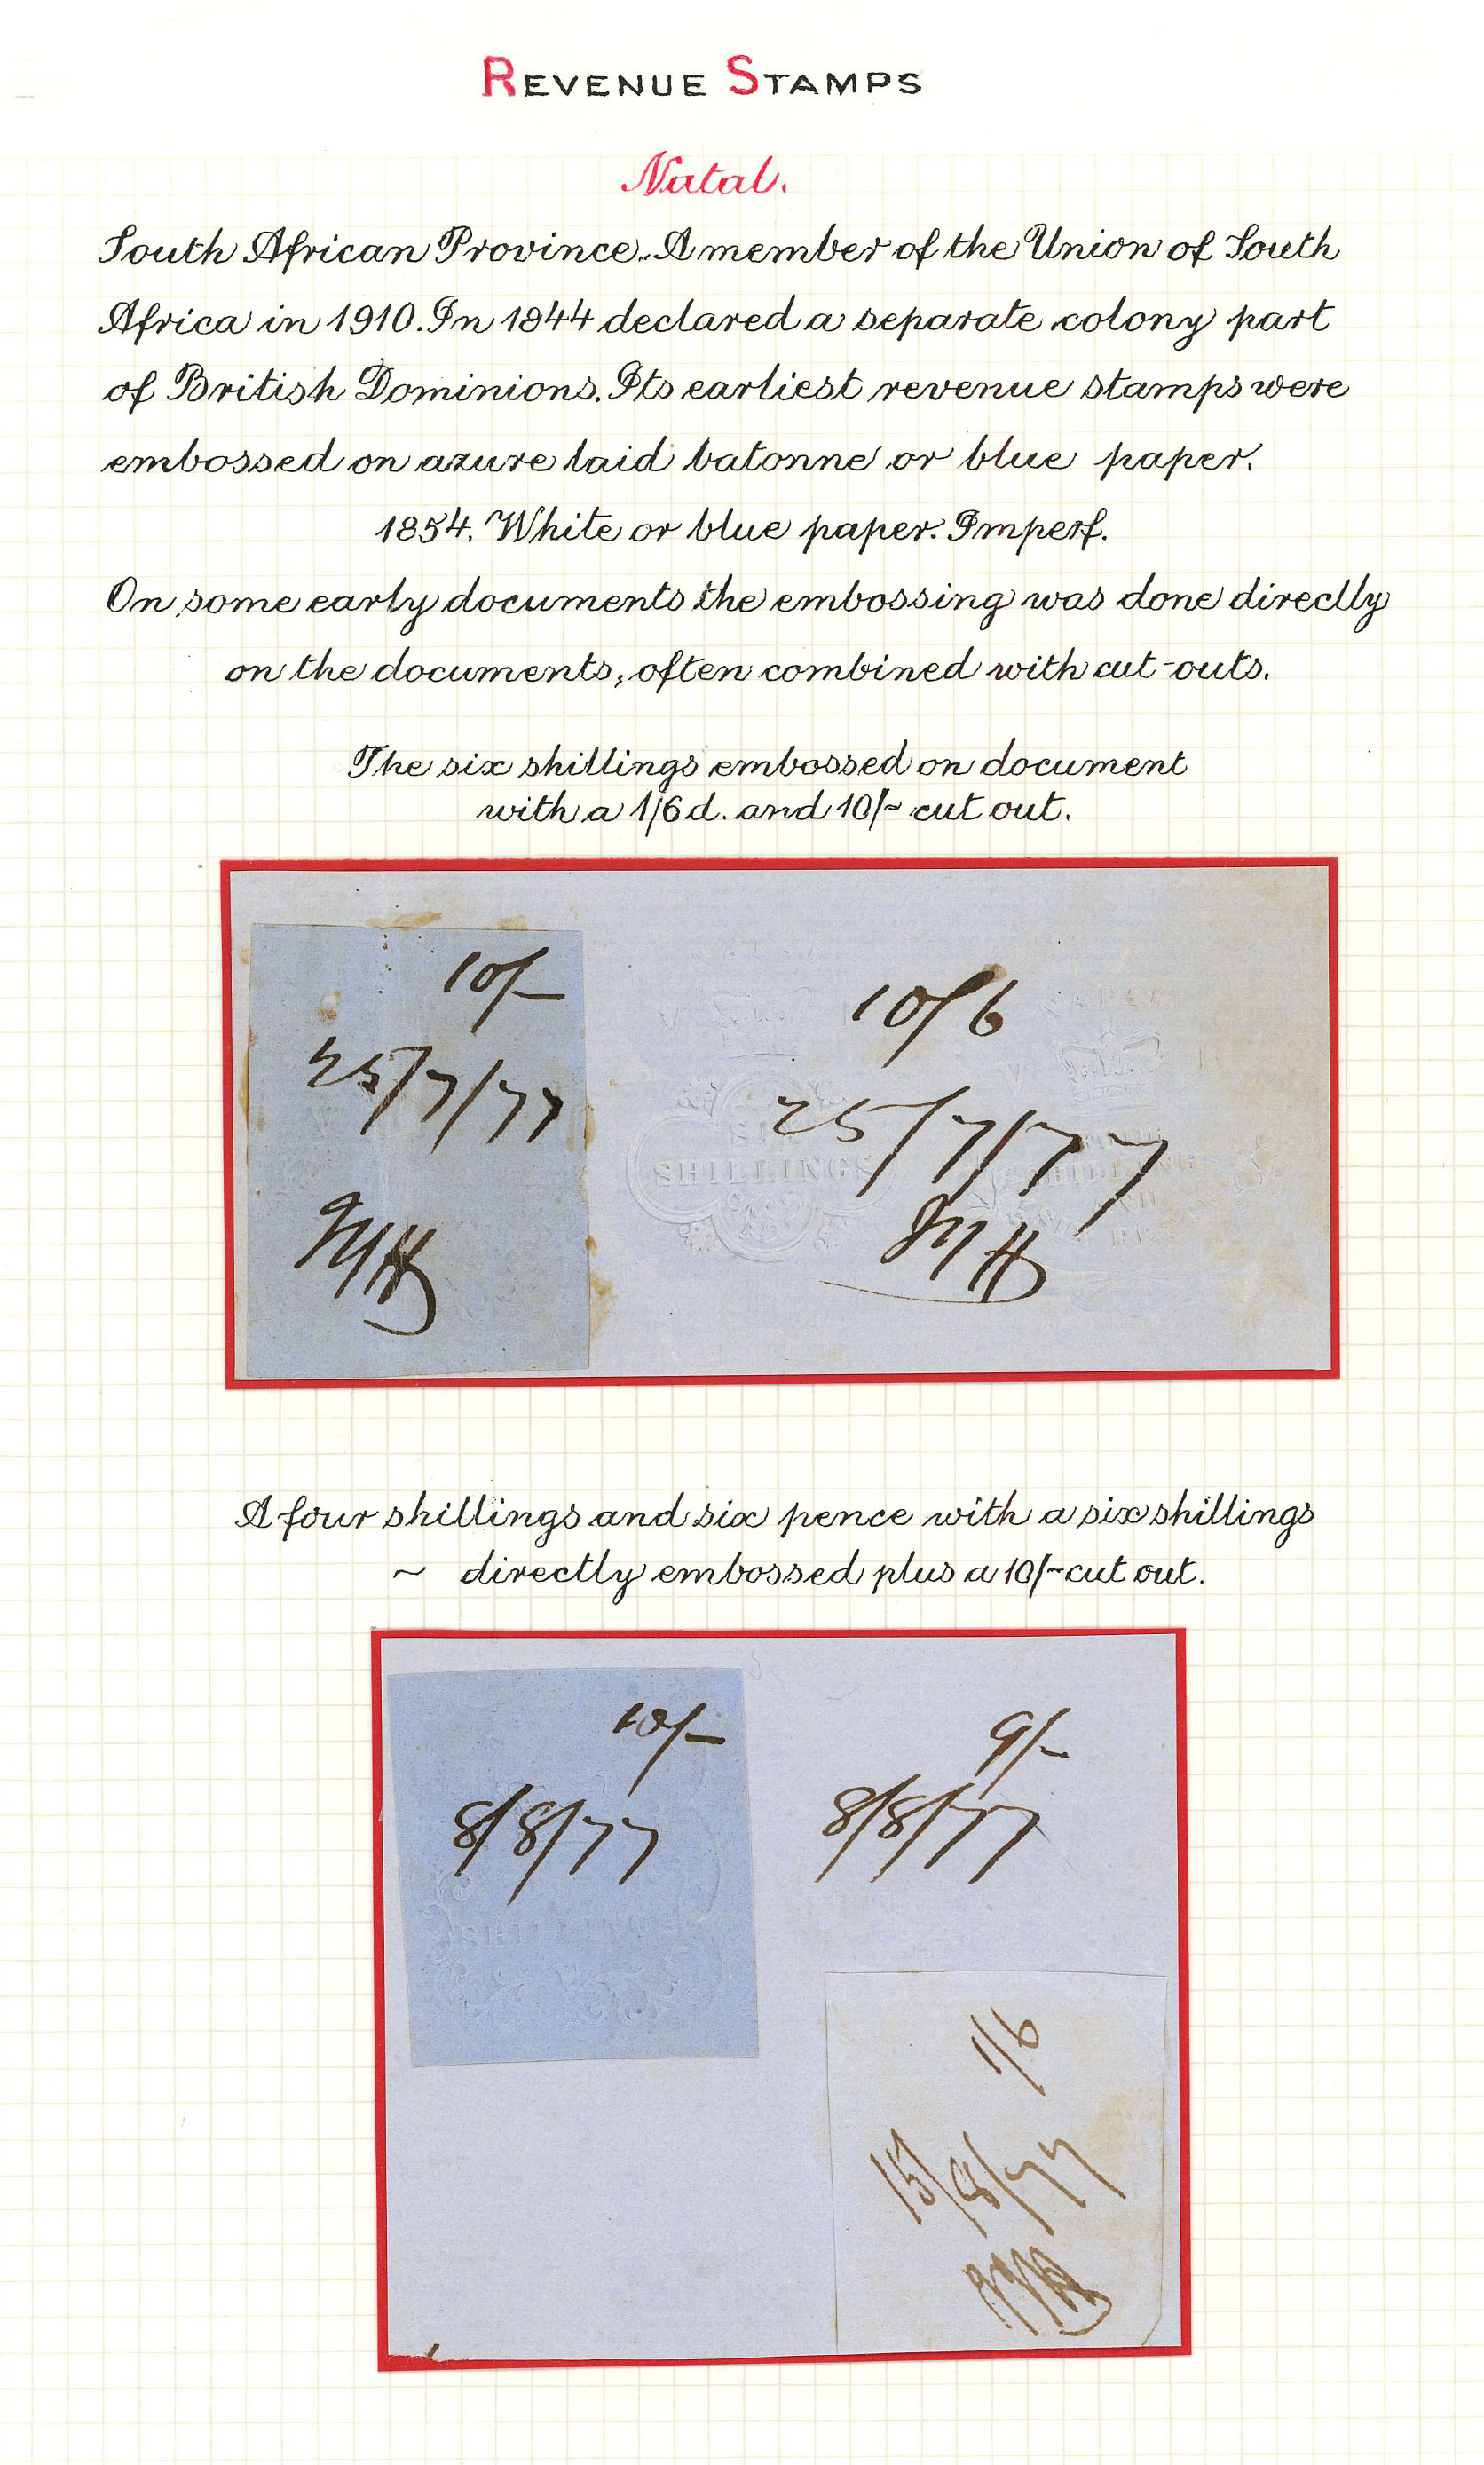 REVENUE STAMPS
Natal.
South African Province. A member of the Union of South
Africa in 1910. In 1844 declared a separate colony part
of British Dominions. Its earliest revenue stamps were
embossed on azure laid batonne or blue paper.
1854. White or blue paper. Imperf.
On some early documents the embossing was done directly
on the documents, often combined with cut-outs.
The six shillings embossed on document
with a 1/6d. and 10/- cut out.
10/-
25/7/77
10/6
25/7/77
SIX
SHILLINGS
NATAL
SHILLINGS
A four shillings and six pence with a six shillings
~ directly embossed plus a 10/- cut out.
10/-
8/8/77
SHILLINGS
9/-
8/8/77
1/6
15/8/77